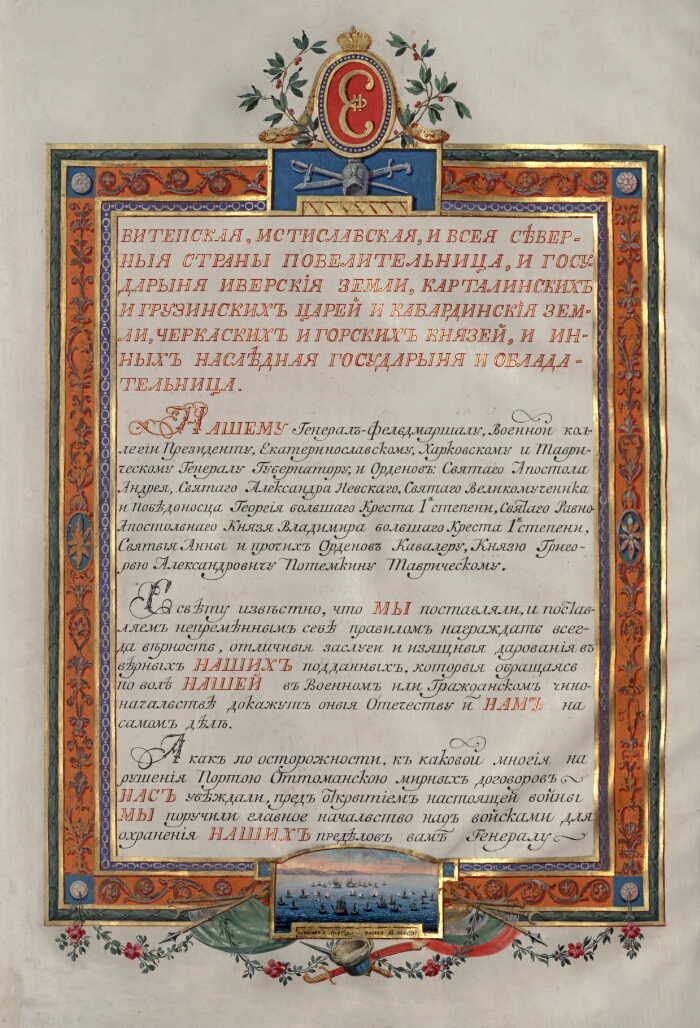 ВИТЕПСКАЯ, МСТИСЛАВСКАЯ, И ВСЕЯ СѢВЕР-
НЫЯ СТРАНЫ ПОВЕЛИТЕЛЬНИЦА, И ГОСУ-
ДАРЫНЯ ИВЕРСКІЯ ЗЕМЛИ, КАРТАЛИНСКИХЪ
И ГРУЗИНСКИХЪ ЦАРЕЙ И КАБАРДИНСКІЯ ЗЕМ-
ЛИ, ЧЕРКАСКИХЪ И ГОРСКИХЪ КНЯЗЕЙ, И ИН-
НЫХЪ НАСЛѢДНАЯ ГОСУДАРЫНЯ И ОБЛАДА-
ТЕЛЬНИЦА.
НАШЕМУ Генералъ-фелдмаршалу, Военной кол-
легіи Президенту, Екатеринославскому, Харковскому и Таври-
ческому Генералу Губернатору, и Орденовъ: Святаго Апостола
Андрея, Святаго Александра Невскаго, Святаго Великомученика
и Побѣдоносца Георгія болшаго Креста 1й степени, Святаго Равно-
Апостолнаго Князя Владимира болшаго Креста 1й степени,
Святыя Анны и прочихъ Орденовъ Кавалеру, Князю Григо-
рью Александровичу Потемкину Таврическому.
Всѣму свѣту извѣстно, что МЫ поставляли, и постав-
ляемъ непремѣннымъ себѣ правиломъ награждать всег-
да вѣрность, отличныя заслуги и изящныя дарованія въ
вѣрныхъ НАШИХЪ подданныхъ, которыя обращаясь
по волѣ НАШЕЙ въ Военномъ или Гражданскомъ чино-
началствѣ докажутъ оныя Отечеству и НАМЪ на
самомъ дѣлѣ.
А какъ по осторожности, къ каковой многія на
рушенія Портою Оттоманскою мирныхъ договоровъ
НАСЪ убѣждали, предъ открытіемъ настоящей войны
МЫ поручили главное началство надъ войсками для
охраненія НАШИХЪ предѣловъ вамъ Генералу